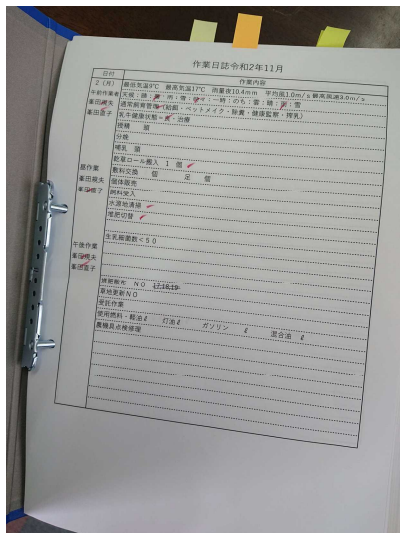 作業日誌令和2年11月
日付 作業内容
2（月） 最低気温9℃ 最高気温17℃ 雨量夜10.4mm 平均風1.0m/s 最高風速9.0m/s
午前作業者 天候：晴：曇：雨：雪： 一時：のち：雲：晴：雨：雪
峯田規夫 通常飼育管理（給餌・ベットメイク・除糞・健康監察・搾乳）
峯田直子 乳牛健康状態＝良・治療
授精 頭
分娩
哺乳 頭
乾草ロール搬入 1 個
昼作業 敷料交換 個 足 個
峯田規夫 個体販売
峯田直子 飼料受入
水源地清掃
堆肥切替
生乳細菌数＜50
午後作業
峯田規夫
峯田直子
堆肥散布 NO 17,18,19
草地更新NO
受託作業
使用燃料・軽油ℓ 灯油ℓ ガソリン ℓ 混合油 ℓ
農機具点検修理